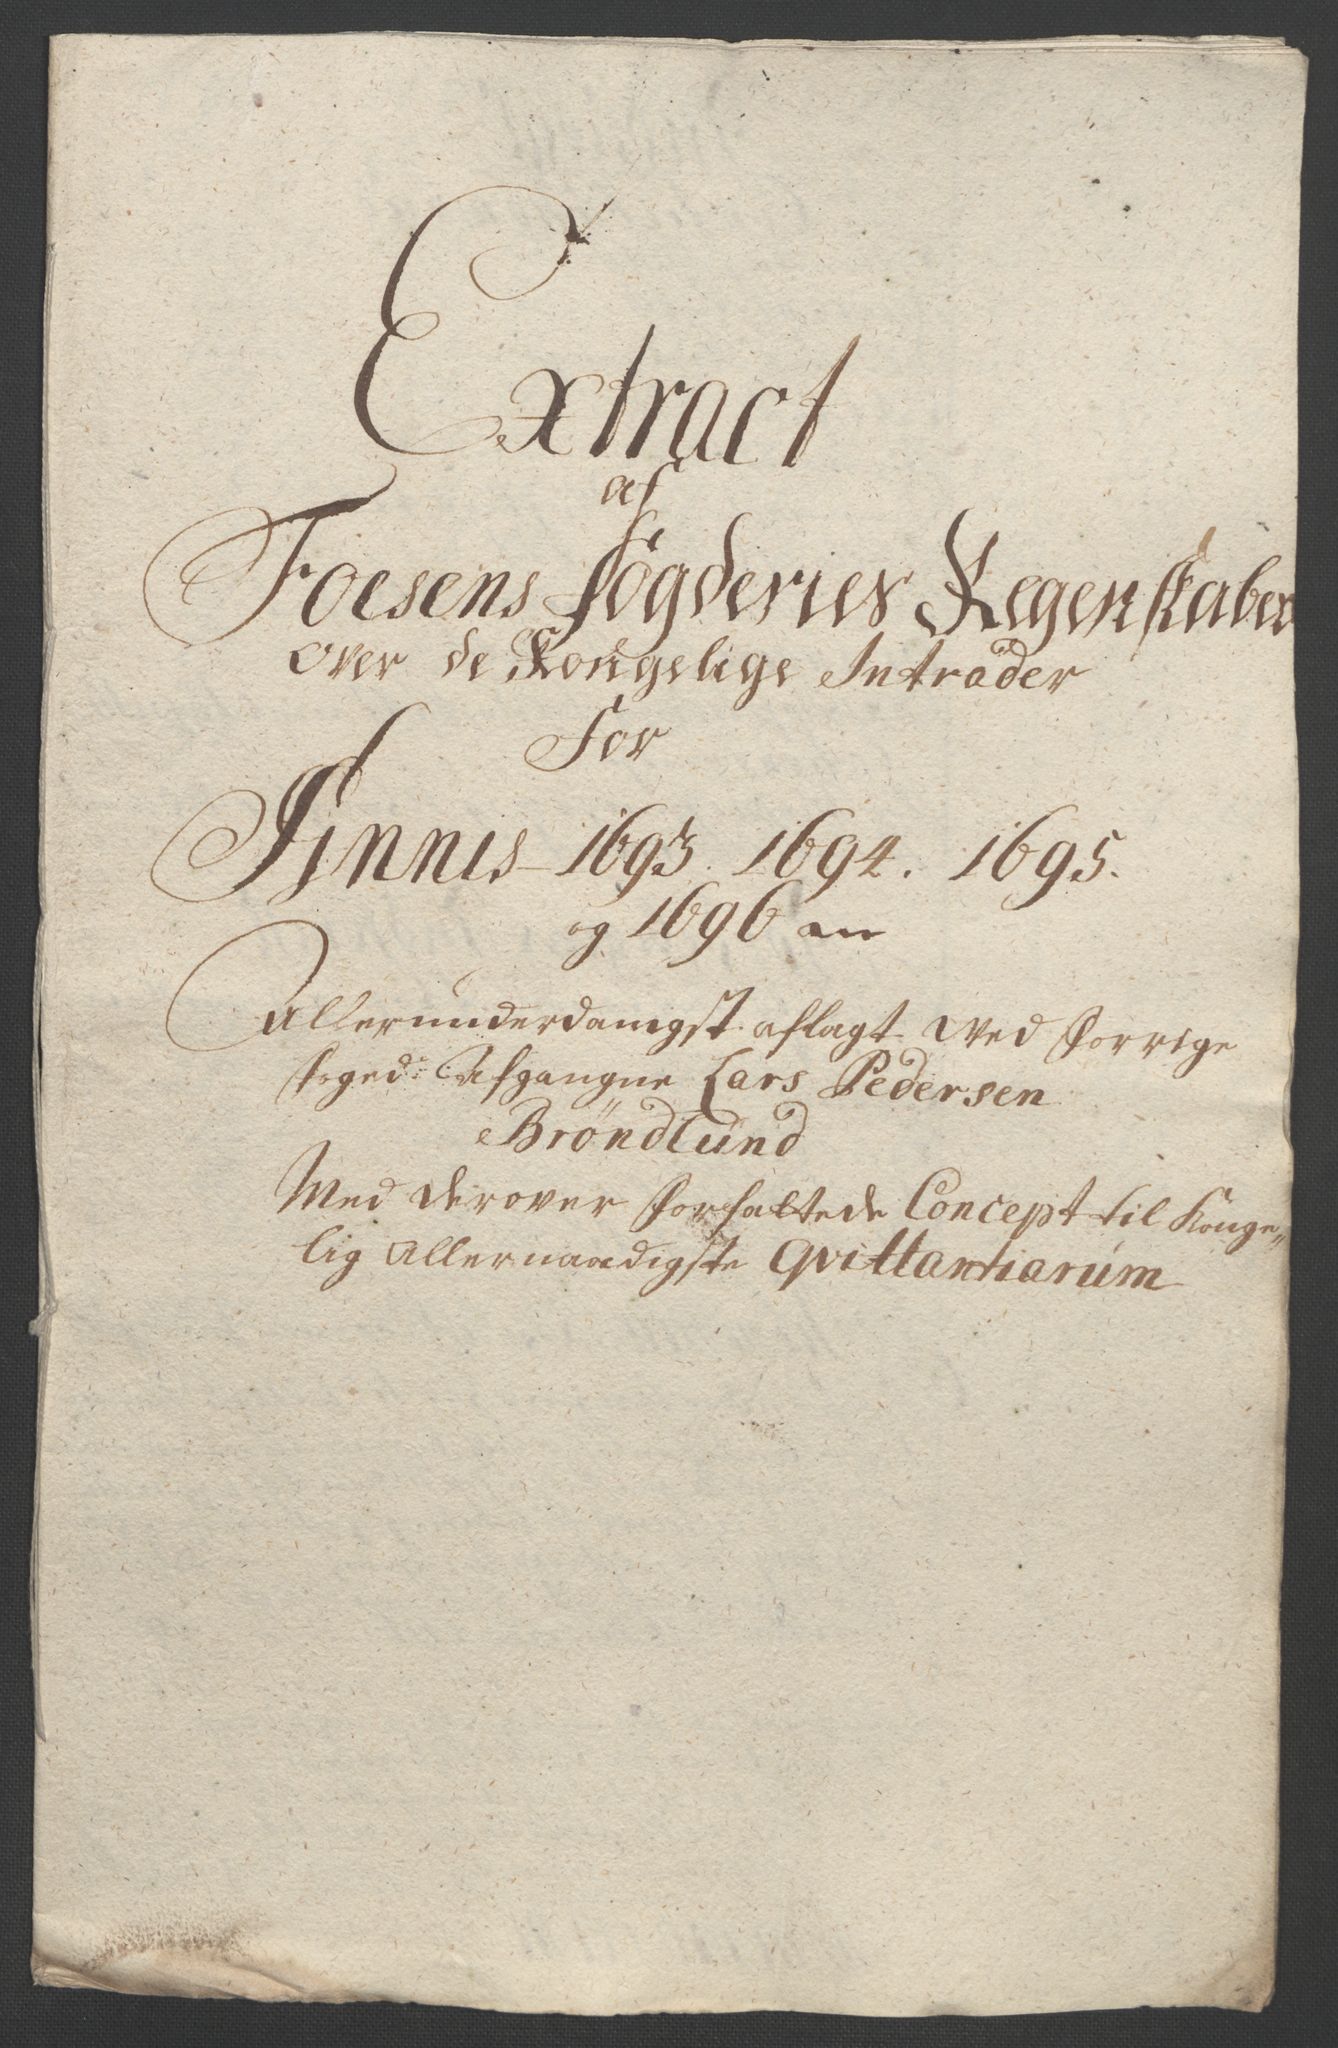 Extract
af
Foesens fögderies Regenskaber
over de Kongelige Intrader
For
Annis 1693. 1694. 1695.
og 1696
Allerunderdanigst aflagt ved forrige
foged Afgangne Lars Pedersen
Bröndlund
Med derover forfattede Concept til Konge„
lig Allernaadigste qvittantiarum